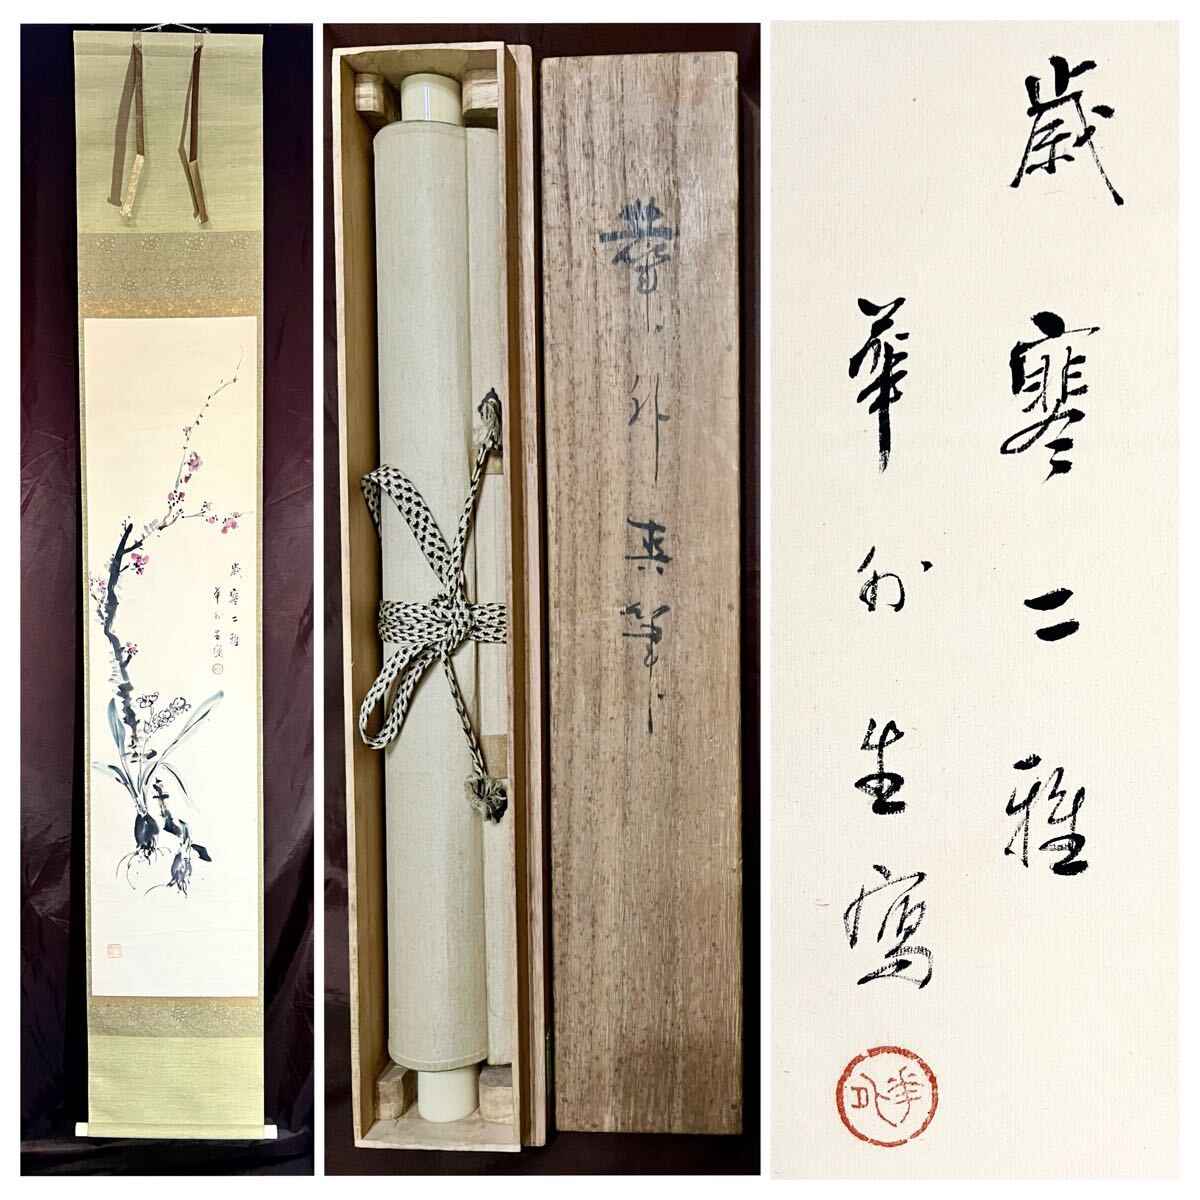 歳寒二雅
華外生寫
華外真筆
歳寒二雅
華外生寫